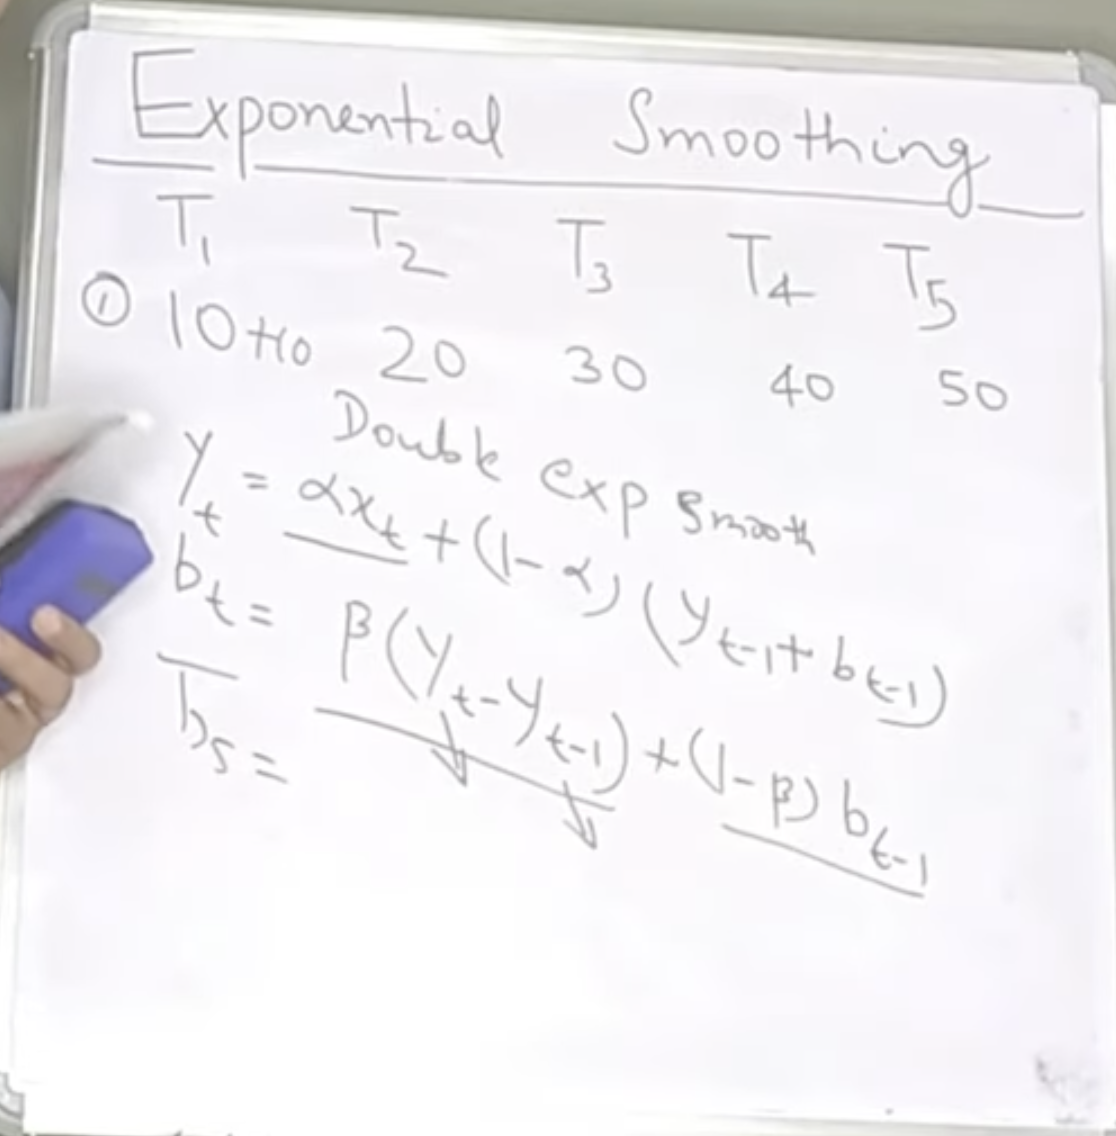 Exponential Smoothing
T₁ T₂ T₃ T₄ T₅
① 10+10 20 30 40 50
Double exp smooth
yₜ = αxₜ + (1-α) (yₜ₋₁ + bₜ₋₁)
bₜ = β(yₜ-yₜ₋₁) + (1-β) bₜ₋₁
b₅ =